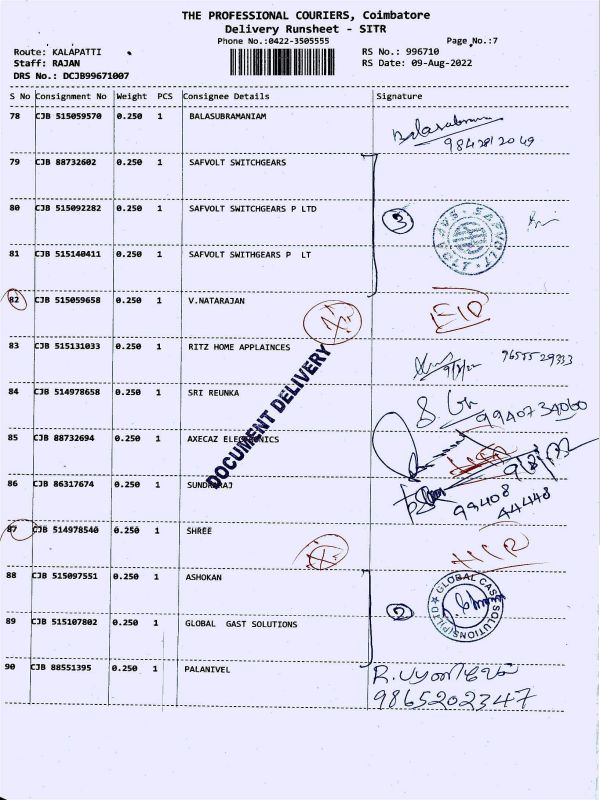 THE PROFESSIONAL COURIERS, Coimbatore
Delivery Runsheet - SITR
Phone No.:0422-3505555
Page No.:7
Route: KALAPATTI
RS No.: 996710
Staff: RAJAN
RS Date: 09-Aug-2022
DRS No.: DCJB99671007
S No Consignment No Weight PCS Consignee Details Signature
78 CJB 515059570 0.250 1 BALASUBRAMANIAM
Balasubramani
9842812049
79 CJB 88732602 0.250 1 SAFVOLT SWITCHGEARS
80 CJB 515092282 0.250 1 SAFVOLT SWITCHGEARS P LTD
3
81 CJB 515140411 0.250 1 SAFVOLT SWITHGEARS P LT
82 CJB 515059658 0.250 1 V.NATARAJAN
83 CJB 515131033 0.250 1 RITZ HOME APPLAINCES
DOCUMENT DELIVERY
84 CJB 514978658 0.250 1 SRI REUNKA
9940734060
85 CJB 88732694 0.250 1 AXECAZ ELECTRONICS
86 CJB 86317674 0.250 1 SUNDRARAJ
99408
44448
87 CJB 514978540 0.250 1 SHREE
88 CJB 515097551 0.250 1 ASHOKAN
GLOBAL GAST SOLUTIONS(P)LTD
89 CJB 515107802 0.250 1 GLOBAL GAST SOLUTIONS
90 CJB 88551395 0.250 1 PALANIVEL
9865202347